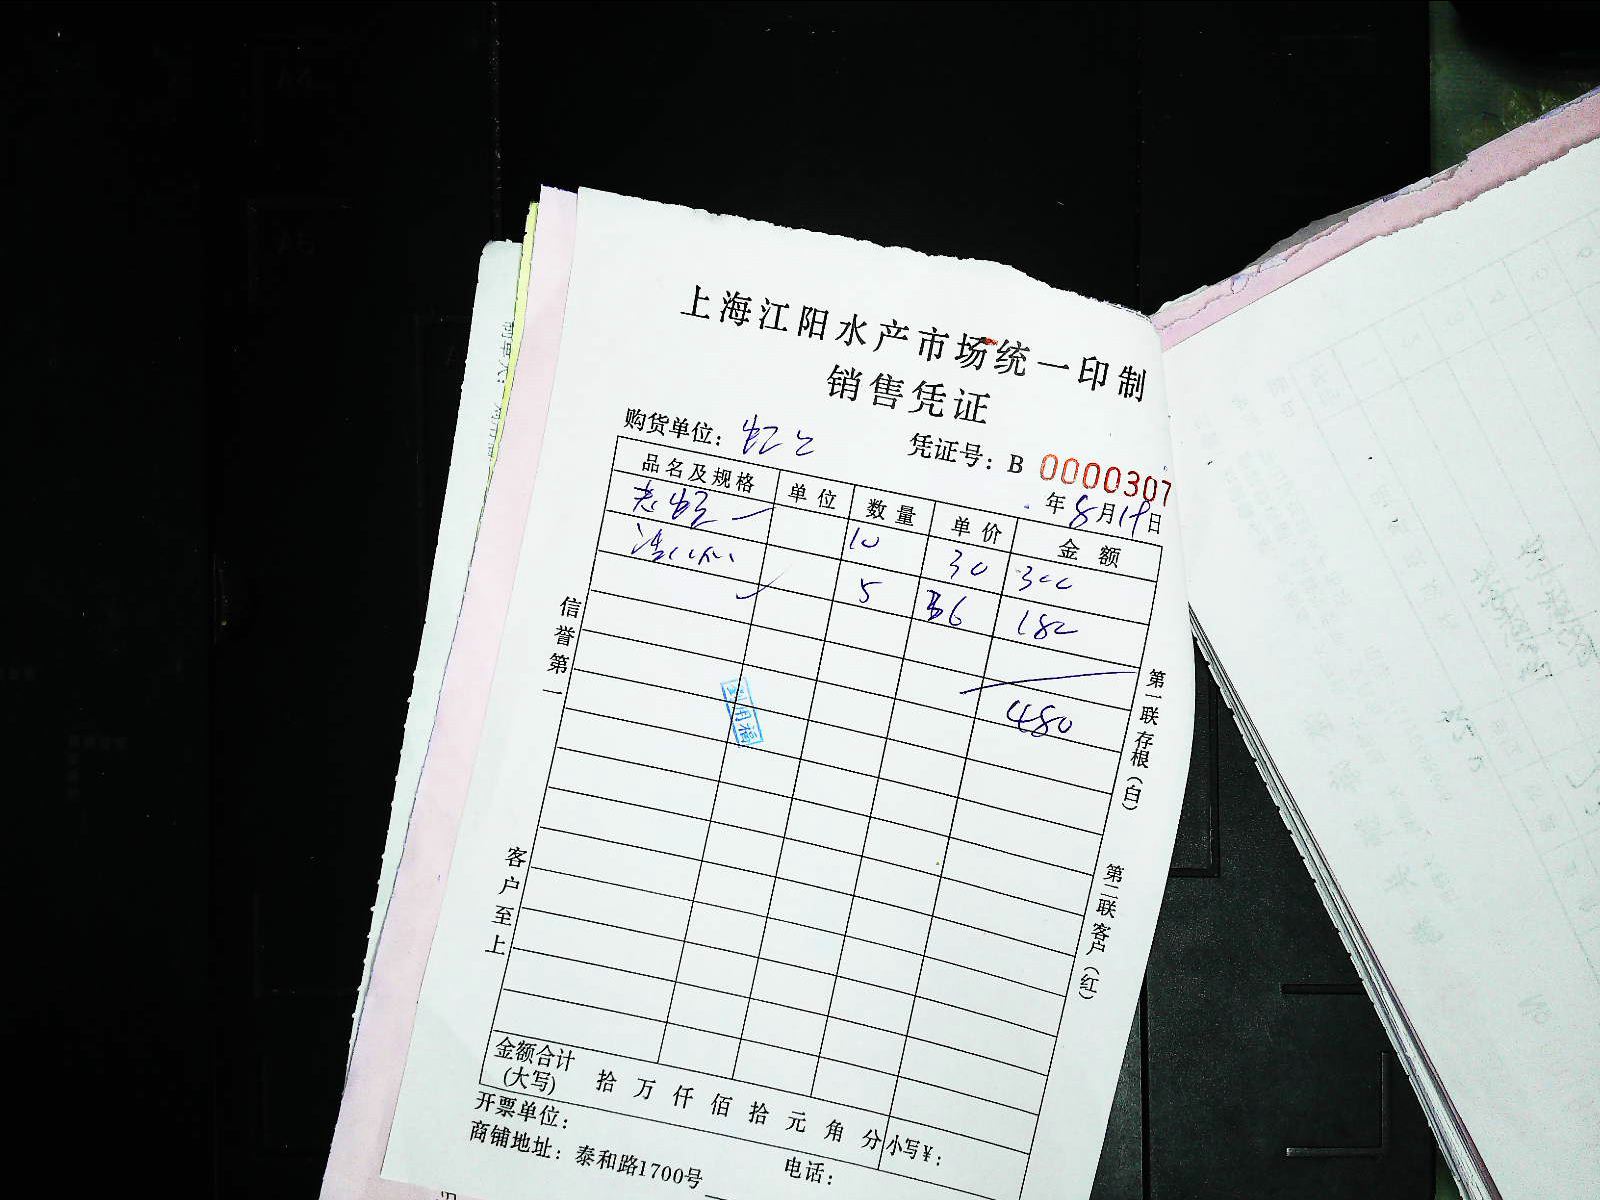 上海江阳水产市场统一印制
销售凭证
购货单位：
凭证号：B 0000307
年8月19日
品名及规格 单位 数量 单价 金额
10 30 300
5 36 180
480
信誉第一
客户至上
第一联存根（白）
第二联客户（红）
金额合计（大写） 拾 万 仟 佰 拾 元 角 分 小写¥：
开票单位：
商铺地址：泰和路1700号 电话：